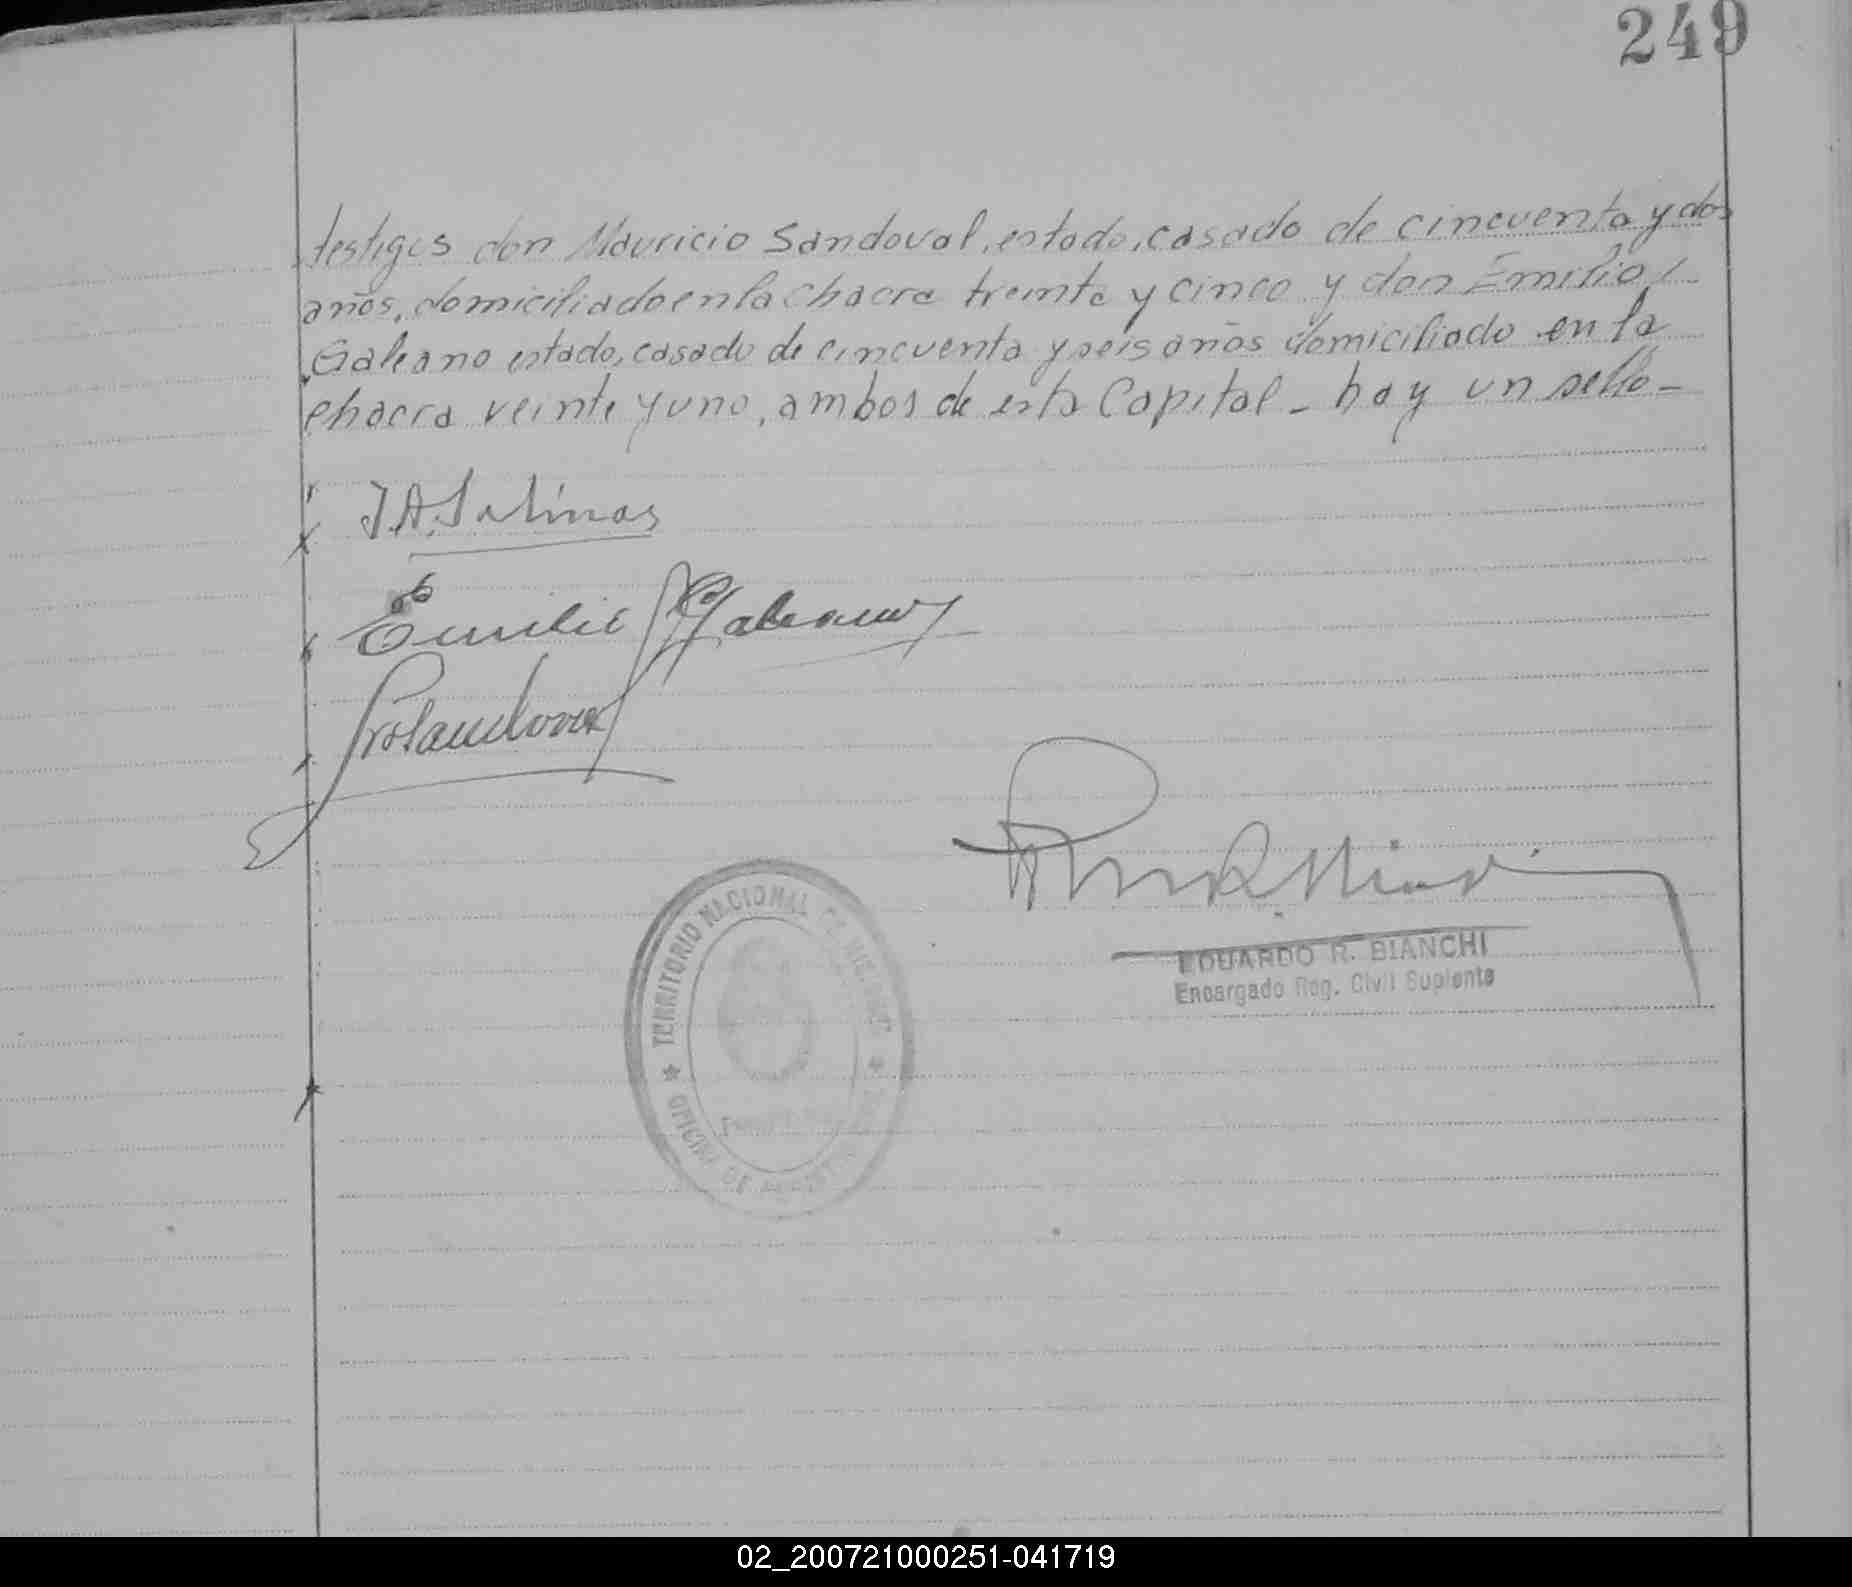 249
testigos don Mauricio Sandoval, estado, casado de cincuenta y dos
años, domiciliado en la chacra treinta y cinco y don Emilio
Galeano estado, casado de cincuenta y seis años domiciliado en la
chacra veinte y uno, ambos de esta Capital - hay un sello -
J.A. Salinas
Emilio Galeano
EDUARDO R. BIANCHI
Encargado Reg. Civil Suplente
TERRITORIO NACIONAL DE MISIONES
OFICINA DE
02_200721000251-041719